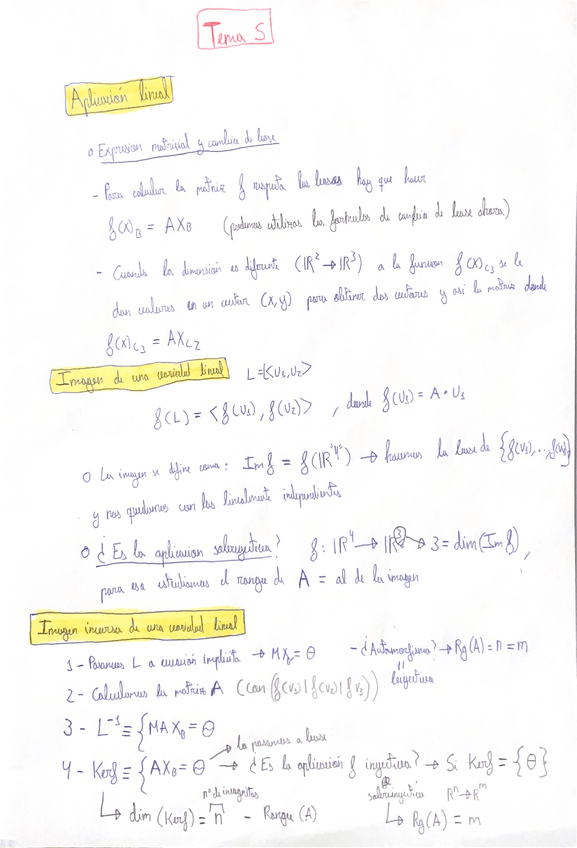 Tema 5
Aplicación lineal
o Expresion matricial y cambio de base
- Para calcular la matriz f respecto las bases hay que hacer
f(x)_B = AX_B (podemos utilizar las formulas de cambio de base ahora)
- Cuando la dimensión es diferente (IR² → IR³) a la funcion f(x)_C3 se le
dan valores en un vector (x,y) para obtener dos vectores y asi la matriz donde
f(x)_C3 = AX_C2
Imagen de una variedad lineal L=<U₁,U₂>
f(L) = <f(U₁), f(U₂)> , donde f(U₁) = A · U₁
o La imagen se define como: Im f = f(IR⁴) → hacemos la base de {f(V₁), ..., f(V₄)}
y nos quedamos con los linealmente independientes
o ¿Es la aplicacion sobreyectiva? f: IR⁴ → IR³ → 3 = dim(Im f),
para eso estudiamos el rango de A = al de la imagen
Imagen inversa de una variedad lineal
1 - Pasamos L a ecuación implícita → MX = θ - ¿Automorfismo? → Rg(A) = n = m
2 - Calculamos la matriz A (con (f(v₁) | f(v₂) | f(v₃)) biyectiva
3 - L⁻¹ ≡ {MAX_B = θ
la pasamos a base
4 - Kerf ≡ {AX_B = θ → ¿Es la aplicación f inyectiva? → Si Kerf = {θ}
nº de incognitas sobreyectiva Rⁿ → Rᵐ
dim (Kerf) = n - Rango (A) Rg(A) = m